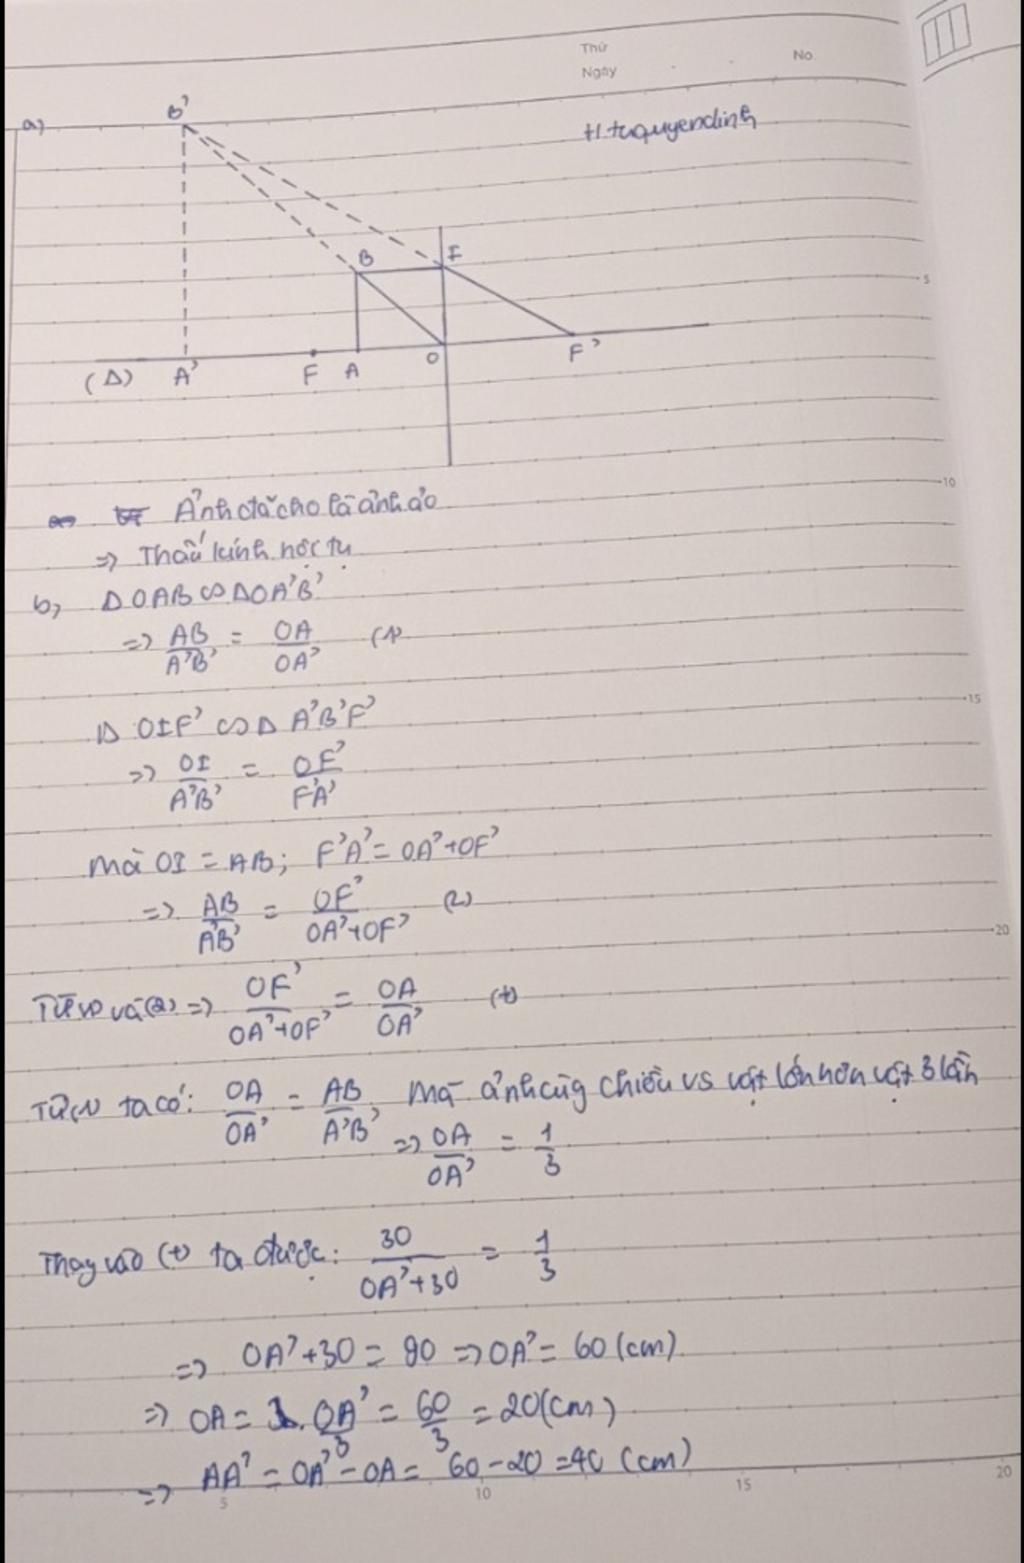 Thứ
Ngày
No
a)
B'
H.tuquyendinh
B
I
(Δ) A' F A O F'
5
Ảnh đã cho là ảnh ảo
=> Thấu kính hội tụ
10
b, ΔOAB ∽ ΔOA'B'
=> AB/A'B' = OA/OA' (1)
Δ OIF' ∽ Δ A'B'F'
15
=> OI/A'B' = OF'/F'A'
Mà OI = AB; F'A' = OA'+OF'
=> AB/A'B' = OF'/OA'+OF' (2)
20
Từ (1) và (2) => OF'/OA'+OF' = OA/OA' (+)
Từ (1) ta có: OA/OA' = AB/A'B' Mà ảnh cùg chiều vs vật lớn hơn vật 3 lần
=> OA/OA' = 1/3
Thay vào (+) ta được: 30/OA'+30 = 1/3
=> OA'+30 = 90 => OA' = 60 (cm)
=> OA = 1.OA'/3 = 60/3 = 20 (cm)
=> AA' = OA' - OA = 60 - 20 = 40 (cm)
5 10 15 20